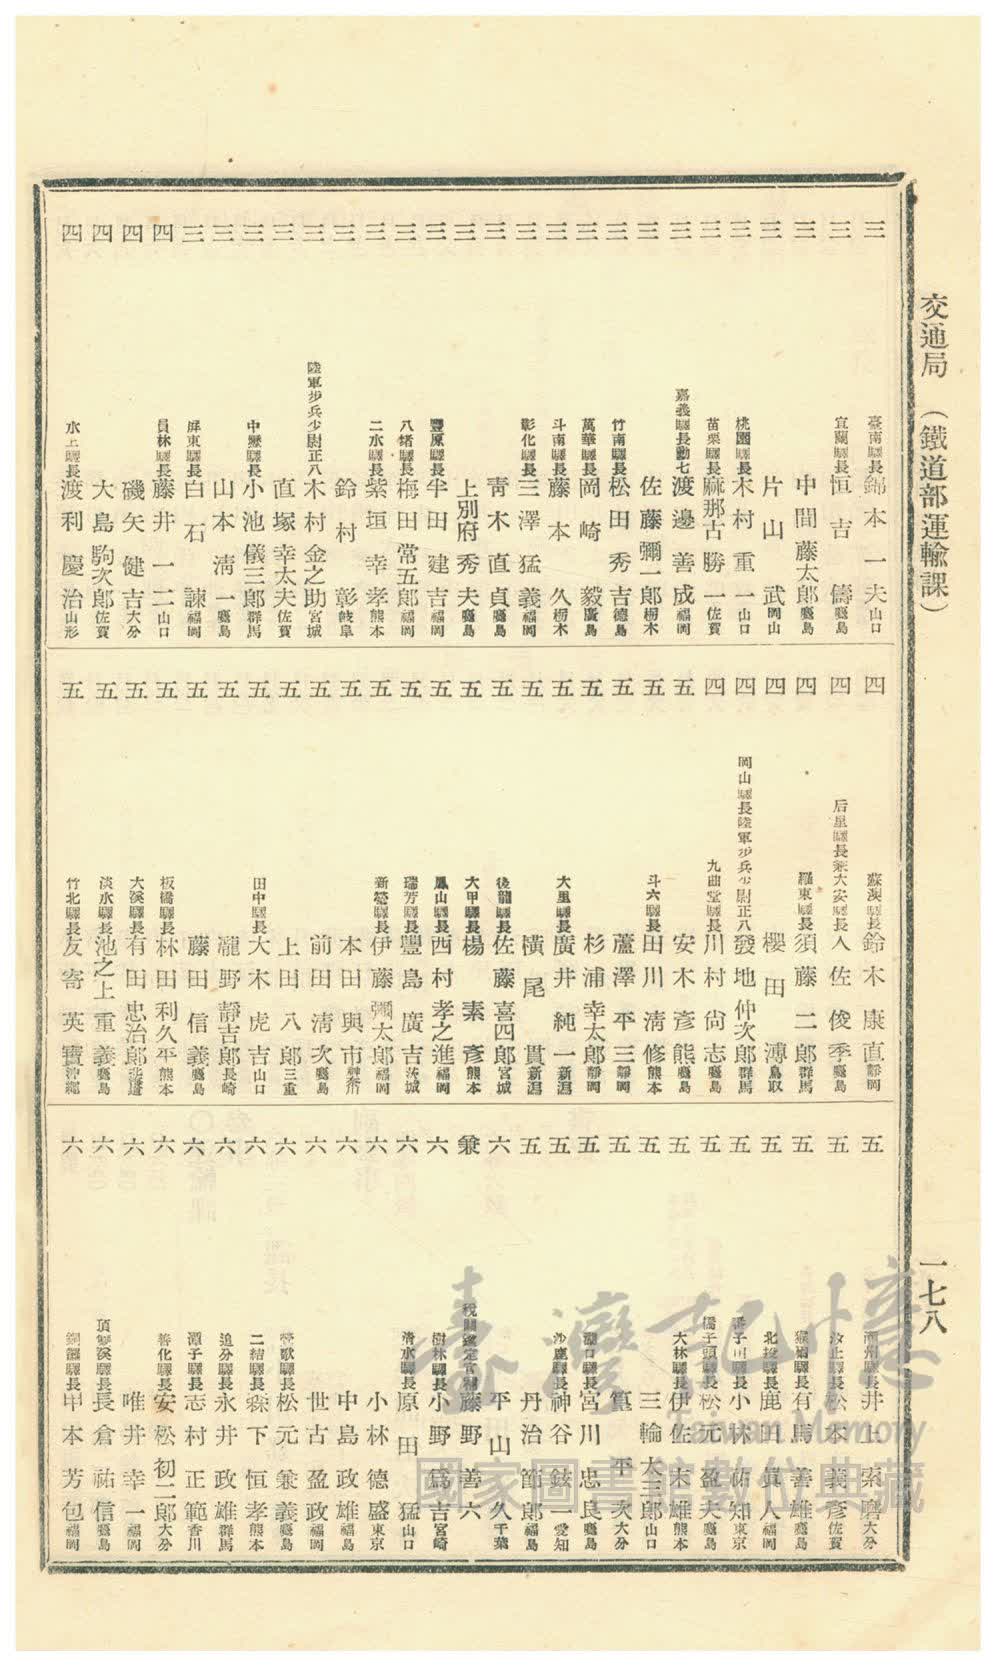 交通局（鐵道部運輸課）
一七八
三 臺南驛長 錦本一夫 山口
三 宜蘭驛長 恒吉儔 鹿島
三 中間藤太郎 鹿島
三 片山武 岡山
三 桃園驛長 木村重一 山口
三 苗栗驛長 麻那古勝一 佐賀
三 嘉義驛長勳七 渡邊善成 福岡
三 佐藤彌一郎 栃木
三 竹南驛長 松田秀吉 德島
三 萬華驛長 岡崎毅 廣島
三 斗南驛長 藤本久 栃木
三 彰化驛長 三澤猛義 福岡
三 靑木直貞 鹿島
三 上別府秀夫 鹿島
三 豐原驛長 半田建吉 福岡
三 八堵驛長 梅田常五郎 福岡
三 二水驛長 紫垣幸孝 熊本
三 鈴村彰 岐阜
三 陸軍步兵少尉正八 木村金之助 宮城
三 直塚幸太夫 佐賀
三 中壢驛長 小池儀三郎 群馬
三 山本淸一 鹿島
三 屏東驛長 白石諫 福岡
四 員林驛長 藤井一二 山口
四 磯矢健吉 大分
四 大島駒次郎 佐賀
四 水上驛長 渡利慶治 山形
四 蘇澳驛長 鈴木康直 靜岡
四 后里驛長兼大安驛長 人佐俊季 鹿島
四 羅東驛長 須藤二郎 群馬
四 櫻田溥 鳥取
四 岡山驛長陸軍步兵少尉正八 發地仲次郎 群馬
四 九曲堂驛長 川村尙志 鹿島
五 安木彥熊 鹿島
五 斗六驛長 田川淸修 熊本
五 蘆澤平三 靜岡
五 杉浦幸太郎 靜岡
五 大里驛長 廣井純一 新潟
五 橫尾貫 新潟
五 後龍驛長 佐藤喜四郎 宮城
五 大甲驛長 楊素彥 熊本
五 鳳山驛長 西村孝之進 福岡
五 瑞芳驛長 豐島廣吉 茨城
五 新營驛長 伊藤彌太郎 福岡
五 本田與市 神奈川
五 前田淸次 鹿島
五 上田八郎 三重
五 田中驛長 大木虎吉 山口
五 瀧野靜吉郎 長崎
五 藤田信義 鹿島
五 板橋驛長 林田利久平 熊本
五 大溪驛長 有田忠治郎 北海道
五 淡水驛長 池之上重義 鹿島
五 竹北驛長 友寄英寶 沖繩
五 潮州驛長 井上索磨 大分
五 汐止驛長 松本義彥 佐賀
五 猴硐驛長 有馬善雄 鹿島
五 北投驛長 鹿田眞人 福岡
五 番子田驛長 小林祐知 東京
五 橋子頭驛長 松元盈夫 鹿島
五 大林驛長 伊佐木雄 熊本
五 三輪太三郎 山口
五 篁平次 大分
五 瀧口驛長 宮川忠良 鹿島
五 沙鹿驛長 神谷鉉一 愛知
五 丹治節郎 福島
六 平山久 千葉
兼 稅關鑑定官補 藤野善六
六 樹林驛長 小野爲吉 宮崎
六 淸水驛長 原田猛 山口
六 小林德盛 東京
六 中島政雄 福島
六 世古盈政 福岡
六 鶯歌驛長 松元兼義 鹿島
六 二結驛長 森下恒孝 熊本
六 追分驛長 永井政雄 群馬
六 潭子驛長 志村正範 香川
六 善化驛長 安松初二郎 大分
六 唯井幸一 福岡
六 頂雙溪驛長 長倉祐信 鹿島
六 銅鑼驛長 甲本芳包 福岡
臺灣記憶
Taiwan Memory
國家圖書館數位典藏